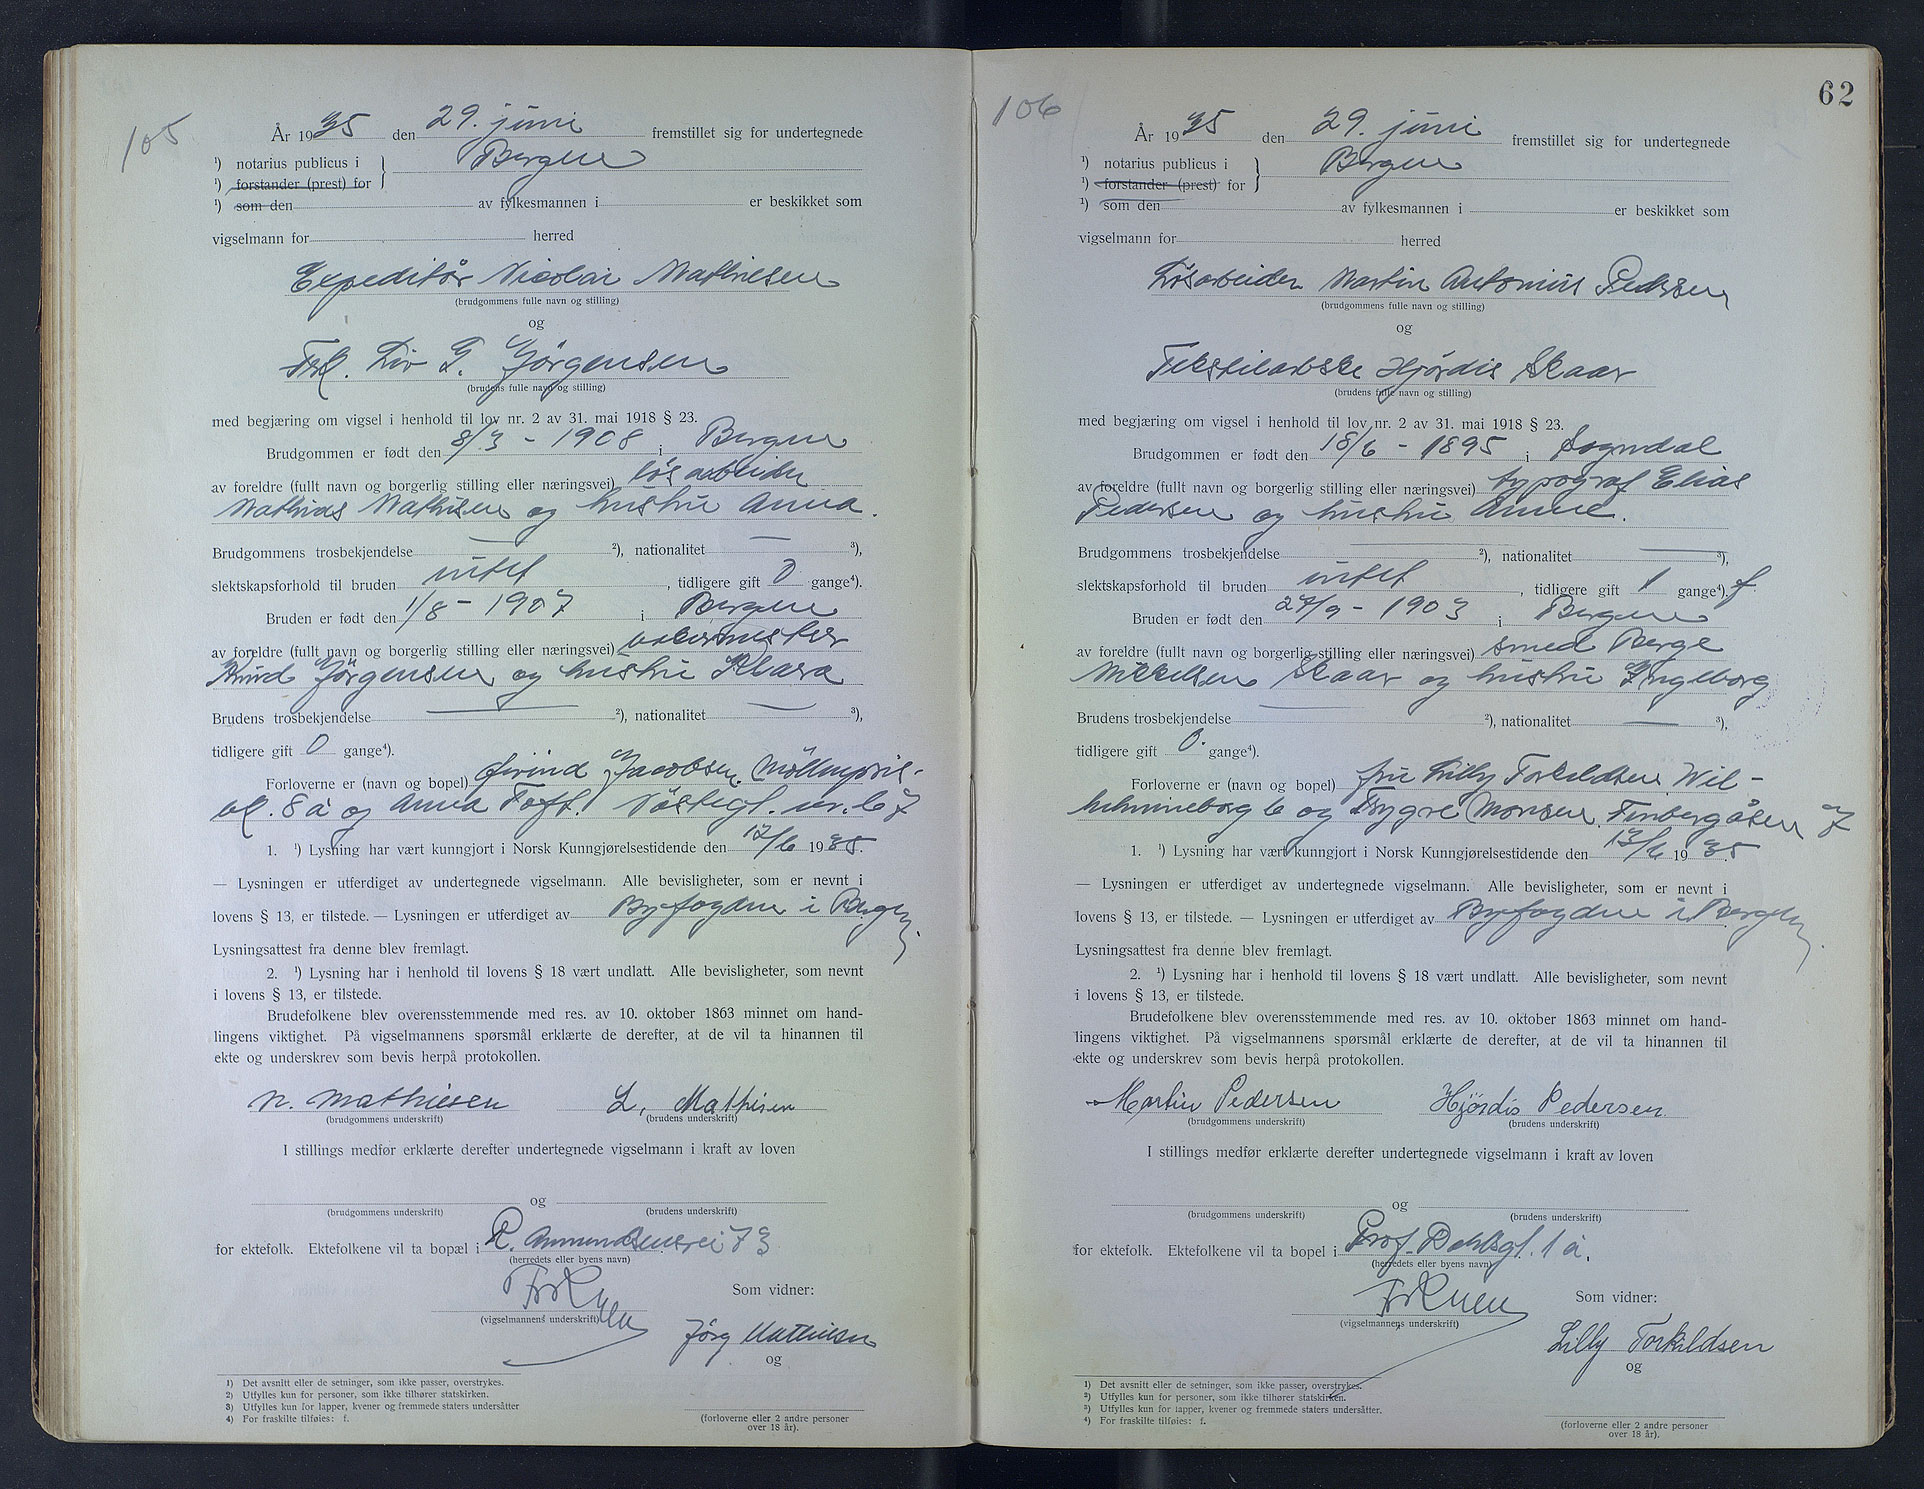 105
År 1935 den 29. juni fremstillet sig for undertegnede
¹) notarius publicus i Bergen
¹) forstander (prest) for
¹) som den av fylkesmannen i er beskikket som
vigselmann for herred
Expeditør Nicolai Mathiesen
(brudgommens fulle navn og stilling)
og
Frk. Liv G. Jörgensen
(brudens fulle navn og stilling)
med begjæring om vigsel i henhold til lov nr. 2 av 31. mai 1918 § 23.
Brudgommen er født den 8/3 - 1908 i Bergen
av foreldre (fullt navn og borgerlig stilling eller næringsvei) løsarbeider
Mathias Mathisen og hustru Anna.
Brudgommens trosbekjendelse — ²), nationalitet — ³),
slektskapsforhold til bruden intet, tidligere gift 0 gange⁴).
Bruden er født den 1/8 - 1907 i Bergen
av foreldre (fullt navn og borgerlig stilling eller næringsvei)
Knud Jörgensen og hustru Klara
Brudens trosbekjendelse — ²), nationalitet — ³),
tidligere gift 0 gange⁴).
Forloverne er (navn og bopel) Øivind Jacobsen,
8 a og Anna Toft. nr. 67
1. ¹) Lysning har vært kunngjort i Norsk Kunngjørelsestidende den 12/6 1935.
— Lysningen er utferdiget av undertegnede vigselmann. Alle bevisligheter, som er nevnt i
lovens § 13, er tilstede. — Lysningen er utferdiget av Byfogden i Bergen.
Lysningsattest fra denne blev fremlagt.
2. ¹) Lysning har i henhold til lovens § 18 vært undlatt. Alle bevisligheter, som nevnt
i lovens § 13, er tilstede.
Brudefolkene blev overensstemmende med res. av 10. oktober 1863 minnet om hand-
lingens viktighet. På vigselmannens spørsmål erklærte de derefter, at de vil ta hinannen til
ekte og underskrev som bevis herpå protokollen.
N. Mathiesen L. Mathiesen
(brudgommens underskrift) (brudens underskrift)
I stillings medfør erklærte derefter undertegnede vigselmann i kraft av loven
og
(brudgommens underskrift) (brudens underskrift)
for ektefolk. Ektefolkene vil ta bopæl i R. Amundsensvei 73
(herredets eller byens navn)
Som vidner:
(vigselmannens underskrift)
Jörg Mathiesen
og
(forloverne eller 2 andre personer
over 18 år).
1) Det avsnitt eller de setninger, som ikke passer, overstrykes.
2) Utfylles kun for personer, som ikke tilhører statskirken.
3) Utfylles kun for lapper, kvener og fremmede staters undersåtter
4) For fraskilte tilføies: f.
62
106
År 1935 den 29. juni fremstillet sig for undertegnede
¹) notarius publicus i Bergen
¹) forstander (prest) for
¹) som den av fylkesmannen i er beskikket som
vigselmann for herred
Løsarbeider Martin Antonius Pedersen
(brudgommens fulle navn og stilling)
og
Tekstilarbske Hjørdis Skaar
(brudens fulle navn og stilling)
med begjæring om vigsel i henhold til lov nr. 2 av 31. mai 1918 § 23.
Brudgommen er født den 18/6 - 1895 i Sogndal
av foreldre (fullt navn og borgerlig stilling eller næringsvei) typograf Elias
Pedersen og hustru Anne.
Brudgommens trosbekjendelse — ²), nationalitet — ³),
slektskapsforhold til bruden intet, tidligere gift 1 gange⁴). f.
Bruden er født den 27/9 - 1903 i Bergen
av foreldre (fullt navn og borgerlig stilling eller næringsvei) smed Berge
Mikkelsen Skaar og hustru Ingeborg
Brudens trosbekjendelse — ²), nationalitet — ³),
tidligere gift 0. gange⁴).
Forloverne er (navn og bopel) fru Lilly Torkildsen, Wil-
helmineborg 6 og Trygve Monsen, Finbergåsen 7
1. ¹) Lysning har vært kunngjort i Norsk Kunngjørelsestidende den 13/6 1935.
— Lysningen er utferdiget av undertegnede vigselmann. Alle bevisligheter, som er nevnt i
lovens § 13, er tilstede. — Lysningen er utferdiget av Byfogden i Bergen.
Lysningsattest fra denne blev fremlagt.
2. ¹) Lysning har i henhold til lovens § 18 vært undlatt. Alle bevisligheter, som nevnt
i lovens § 13, er tilstede.
Brudefolkene blev overensstemmende med res. av 10. oktober 1863 minnet om hand-
lingens viktighet. På vigselmannens spørsmål erklærte de derefter, at de vil ta hinannen til
ekte og underskrev som bevis herpå protokollen.
Martin Pedersen Hjördis Pedersen
(brudgommens underskrift) (brudens underskrift)
I stillings medfør erklærte derefter undertegnede vigselmann i kraft av loven
og
(brudgommens underskrift) (brudens underskrift)
for ektefolk. Ektefolkene vil ta bopel i Prof. Dahlsgt. 1 a.
(herredets eller byens navn)
Som vidner:
(vigselmannens underskrift)
Lilly Torkildsen
og
(forloverne eller 2 andre personer
over 18 år).
1) Det avsnitt eller de setninger, som ikke passer, overstrykes.
2) Utfylles kun for personer, som ikke tilhører statskirken.
3) Utfylles kun for lapper, kvener og fremmede staters undersåtter.
4) For fraskilte tilføies: f.